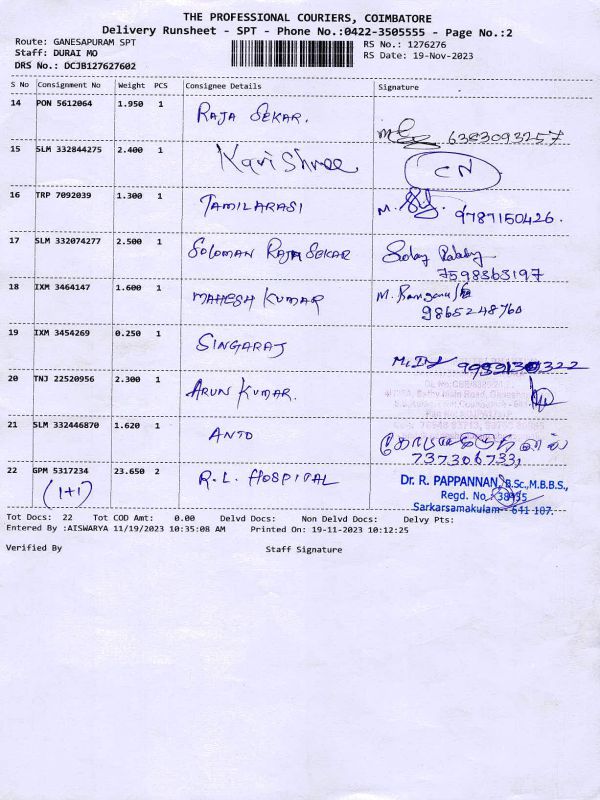 THE PROFESSIONAL COURIERS, COIMBATORE
Delivery Runsheet - SPT - Phone No.:0422-3505555 - Page No.:2
Route: GANESAPURAM SPT
Staff: DURAI MO
DRS No.: DCJB127627602
RS No.: 1276276
RS Date: 19-Nov-2023
S No Consignment No Weight PCS Consignee Details Signature
14 PON 5612064 1.950 1 RAJA SEKAR. 6383093257
15 SLM 332844275 2.400 1 Kavi Shree CN
16 TRP 7092039 1.300 1 TAMILARASI M. 9787150426.
17 SLM 332074277 2.500 1 SOLOMAN RAJA SEKAR
7598363197
18 IXM 3464147 1.600 1 MAHESH KUMAR M.
9865248760
19 IXM 3454269 0.250 1 SINGARAJ
20 TNJ 22520956 2.300 1 ARUN KUMAR.
21 SLM 332446870 1.620 1 ANTO
22 GPM 5317234 23.650 2 R.L. HOSPITAL Dr. R. PAPPANNAN, B.Sc.,M.B.B.S.,
(1+1) Regd. No. 38995
Sarkarsamakulam - 641 107.
Tot Docs: 22 Tot COD Amt: 0.00 Delvd Docs: Non Delvd Docs: Delvy Pts:
Entered By :AISWARYA 11/19/2023 10:35:08 AM Printed On: 19-11-2023 10:12:25
Verified By Staff Signature